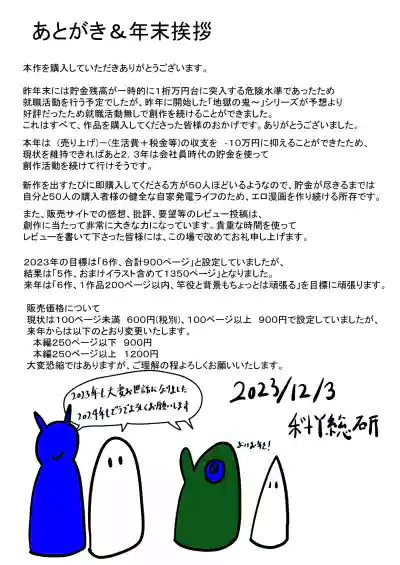 あとがき＆年末挨拶
本作を購入していただきありがとうございます。
昨年末には貯金残高が一時的に1桁万円台に突入する危険水準であったため
就職活動を行う予定でしたが、昨年に開始した「地獄の鬼～」シリーズが予想より
好評だったため就職活動無しで創作を続けることができました。
これはすべて、作品を購入してくださった皆様のおかげです。ありがとうございました。
本年は （売り上げ）－（生活費＋税金等）の収支を －10万円に抑えることができたため、
現状を維持できればあと2，3年は会社員時代の貯金を使って
創作活動を続けて行けそうです。
新作を出すたびに即購入してくださる方が50人ほどいるようなので、貯金が尽きるまでは
自分と50人の購入者様の健全な自家発電ライフのため、エロ漫画を作り続ける所存です。
また、販売サイトでの感想、批評、要望等のレビュー投稿は、
創作に当たって非常に大きな力になっています。貴重な時間を使って
レビューを書いて下さった皆様には、この場で改めてお礼申し上げます。
2023年の目標は「6作、合計900ページ」と設定していましたが、
結果は「5作、おまけイラスト含めて1350ページ」となりました。
来年は「6作、1作品200ページ以内、竿役と背景もちょっとは頑張る」を目標に頑張ります。
販売価格について
現状は100ページ未満 600円(税別)、100ページ以上 900円で設定していましたが、
来年からは以下のとおり変更いたします。
本編250ページ以下 900円
本編250ページ以上 1200円
大変恐縮ではありますが、ご理解の程よろしくお願いいたします。
2023年も大変お世話になりました
2024年もどうぞよろしくお願いします
よいお年を！
2023/12/3